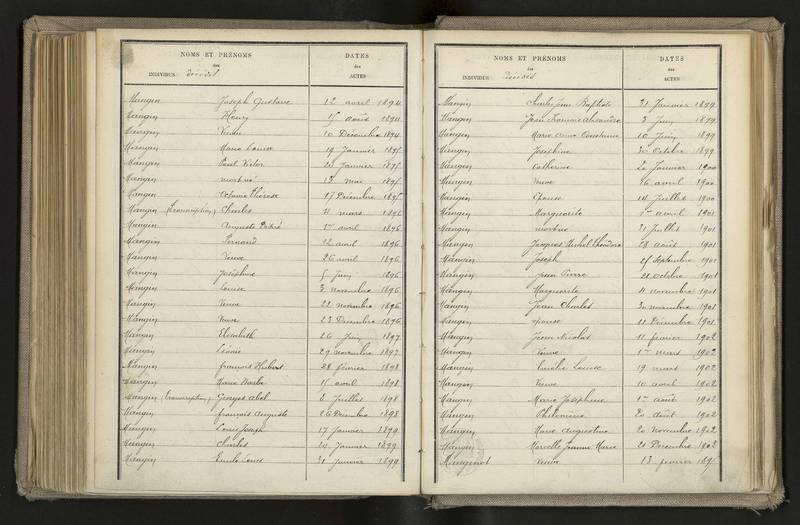 NOMS ET PRÉNOMS
des
INDIVIDUS décédés
DATES
des
ACTES
Mangin Joseph Gustave 12 avril 1894
Mangin Henry 15 août 1894
Mangin Veuve 10 Décembre 1894
Mangin Marie Louise 19 Janvier 1895
Mangin Paul Victor 23 Janvier 1895
Mangin mort né 12 mai 1895
Mangin Octavie Thérèse 17 Décembre 1895
Mangin (transcription) Charles 4 mars 1896
Mangin Auguste Désiré 1er avril 1896
Mangin Fernand 12 avril 1896
Mangin Veuve 26 avril 1896
Mangin Joséphine 5 Juin 1896
Mangin Louise 3 novembre 1896
Mangin Veuve 22 novembre 1896
Mangin Veuve 23 Décembre 1896
Mangin Elisabeth 26 Juin 1897
Mangin Léonie 29 novembre 1897
Mangin françois Hubert 28 février 1898
Mangin Marie 15 avril 1898
Mangin (transcription) Georges Abel 8 Juillet 1898
Mangin françois Auguste 26 Décembre 1898
Mangin Louis Joseph 17 Janvier 1899
Mangin Charles 24 Janvier 1899
Mangin Emile Louis 31 Janvier 1899
NOMS ET PRÉNOMS
des
INDIVIDUS décédés
DATES
des
ACTES
Mangin Charles Jean Baptiste 31 Janvier 1899
Mangin Jean François Alexandre 3 Juin 1899
Mangin Marie Anne Constance 10 Juin 1899
Mangin Joséphine 30 Octobre 1899
Mangin Catherine 20 Janvier 1900
Mangin Veuve 16 avril 1900
Mangin épouse 14 Juillet 1900
Mangin Marguerite 1er avril 1901
Mangin mort né 31 Juillet 1901
Mangin Jacques Michel Théodore 28 août 1901
Mangin Joseph 25 Septembre 1901
Mangin Jean Pierre 21 octobre 1901
Mangin Marguerite 4 novembre 1901
Mangin Jean Charles 30 novembre 1901
Mangin épouse 11 Décembre 1901
Mangin Jean Nicolas 11 février 1902
Mangin Veuve 1er mars 1902
Mangin Emélie Louise 19 mars 1902
Mangin Veuve 10 avril 1902
Mangin Marie Joséphine 1er août 1902
Mangin Philomène 20 août 1902
Mangin Marie Augustine 20 novembre 1902
Mangin Marcelle Jeanne Marie 21 Décembre 1902
Mangenot Veuve 13 février